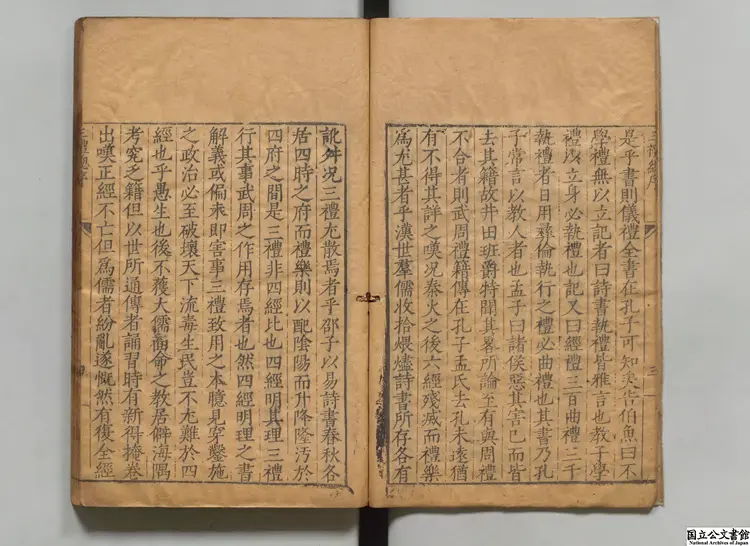 是乎書則儀禮全書在孔子可知矣告伯魚曰不
學禮無以立記者曰詩書執禮皆雅言也教子學
禮以立身必執禮也記又曰經禮三百曲禮三千
執禮者日用彛倫執行之禮必曲禮也其書乃孔
子常言以教人者也孟子曰諸侯惡其害已而皆
去其籍故井田班爵特聞其畧所論至有與周禮
不合者則武周禮籍傳在孔子孟氏去孔未遠猶
有不得其詳之嘆况秦火之後六經殘滅而禮樂
爲尤甚者乎漢世羣儒收拾煨燼詩書所存各有
訛舛况三禮尤散焉者乎邵子以易詩書春秋各
居四時之府而禮樂則以配隂陽而升降隆汚於
四府之間是三禮非四經比也四經明其理三禮
行其事武周之作用存焉者也然四經明理之書
解義或偏未即害事三禮致用之本臆見穿鑿施
之政治必至破壞天下流毒生民豈不尤難於四
經也乎愚生也後不獲大儒面命之教居僻海隅
考究乏籍但以世所通傳者誦習時有新得掩卷
出嘆正經不亡但爲儒者紛亂遂慨然有復全經
三禮經序
三
国立公文書館
National Archives of Japan